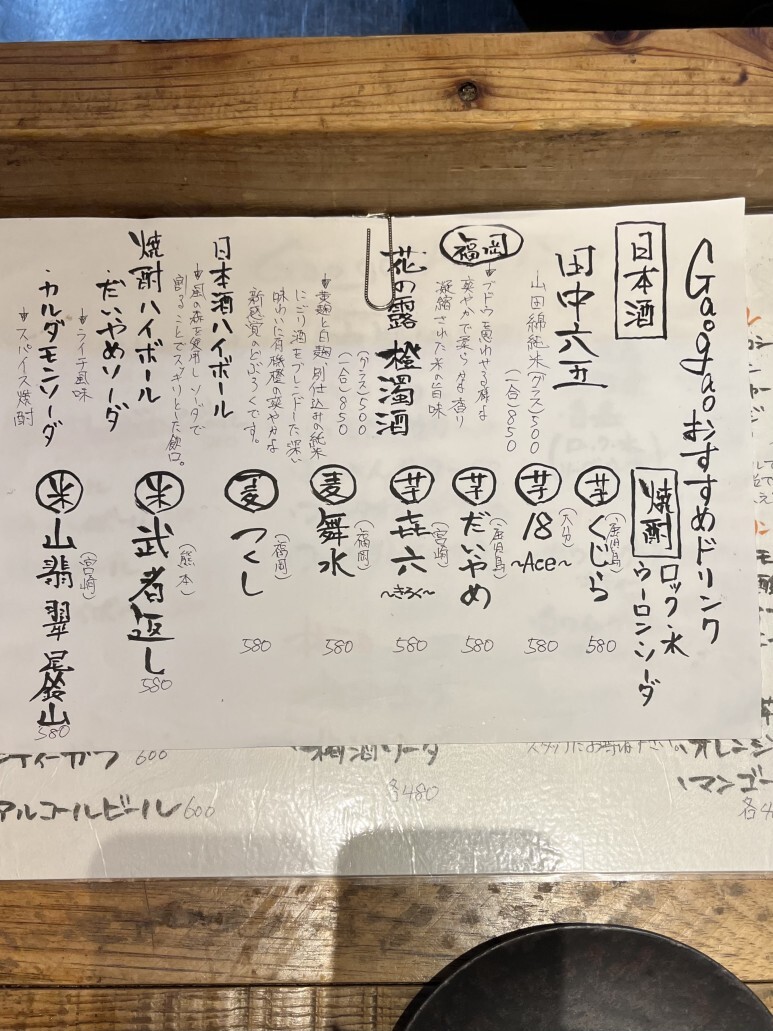 Gaogaoおすすめドリンク
日本酒
福岡
田中六五
山田綿純米(グラス)500
(一合)850
ブドウを思わせる様な
爽やかで柔らかな香り
凝縮された米の旨味
花の露 橙濁酒
(グラス)500
(一合)850
黄麹と白麹別仕込みの純米
にごり酒をブレンドした深い
味わいに有機橙の爽やかな
新感覚のどぶろくです。
日本酒ハイボール
風の森を使用しソーダで
割ることでスッキリとした飲口。
焼酎ハイボール
・だいやめソーダ
ライチ風味
・カルダモンソーダ
スパイス焼酎
焼酎
ロック・水
ウーロン・ソーダ
芋 くじら
(鹿児島)
580
芋 18
~Ace~
(大分)
580
芋 だいやめ
(鹿児島)
580
芋 㐂六
~きろく~
(宮崎)
580
麦 舞水
(福岡)
580
麦 つくし
(福岡)
580
米 武者返し
(熊本)
580
米 山翡翠 尾鈴山
(宮崎)
580
ティーガフ 600
アルコールビール 600
梅酒ソーダ
各480
オレンジ
マンゴー